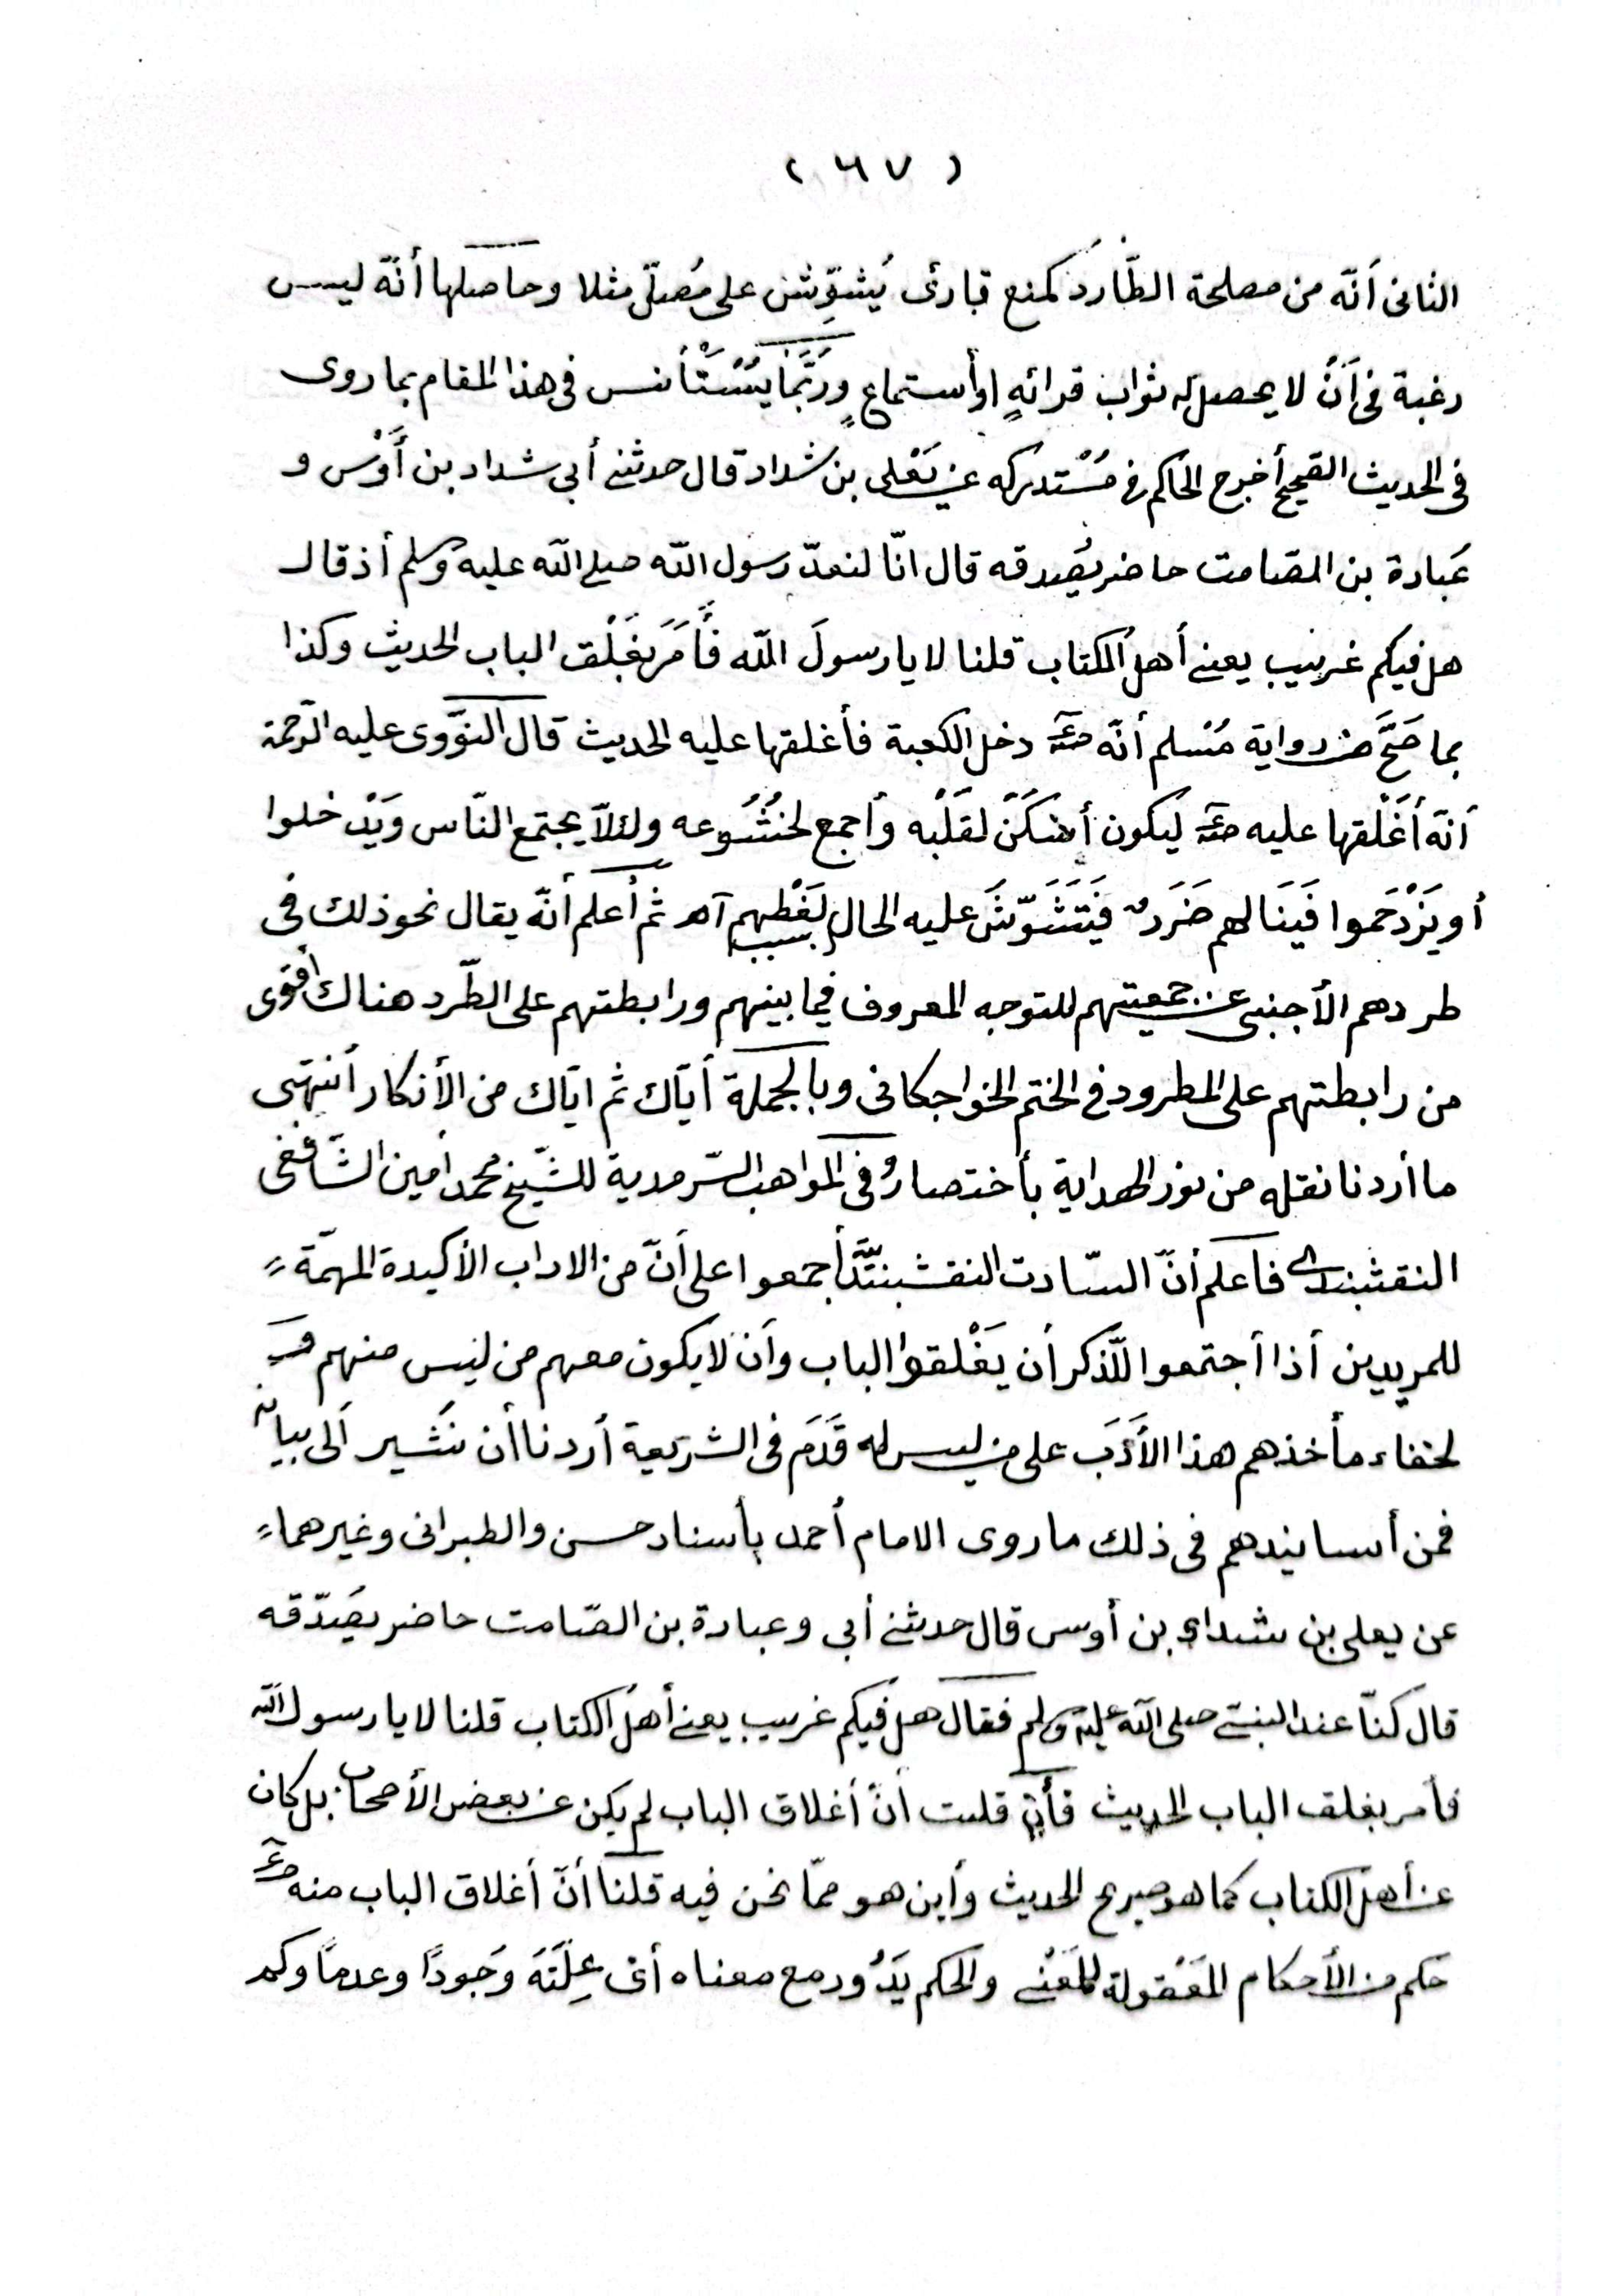 ( ٦٧ )
الثانى أنّه من مصلحة الطّارد كمنع قارئ يُشوِّش على مُصلّى مثلا وحاصلها أنّه ليس
رغبة فى أنْ لا يحصل له ثواب قرائةٍ اوأستماعٍ ورُبَّمَا يُسْتَأنس فى هذا المقام بما روى
فى الحديث الصّحيح أخرج الحاكم فى مُسْتدركه عن يَعْلى بن شداد قال حدثنى أبى شداد بن أَوْس و
عُبادة بن الصّامت حاضر يُصدقه قال انّا لنعدّ رسول اللّه صلى اللّه عليه وسلم أذ قال
هل فيكم غريب يعنى أهل الكتاب قلنا لا يا رسولَ اللّه فَأَمَرَ بغَلْق الباب الحديث وكذا
بما صَحَّ من رواية مُسلم أنّه صلعم دخل الكعبة فأغلقها عليه الحديث قال النّووى عليه الرّحمة
أنّه أغْلقها عليه صلعم ليكون أسْكَنْ لقَلْبه وأجمع لخُشُوعه ولئلّا يجتمع النّاس ويَدْخلوا
أو يَزْدَحَموا فَينَالهم ضَرَر فَيَتَشَوّشَ عليه الحال بسبب لَغْطِهم آه ثم أعلم أنّه يقال نحو ذلك فى
طردهم الأجنبى عن جمعيتهم للتوجه المعروف فيما بينهم ورابطتهم على الطّرد هناك أقوى
من رابطتهم على المطرود فى الختم الخواجكانى وبالجملة أيّاك ثم ايّاك من الأنكار أنتهى
ما أردنا نقله من نور الهداية بأختصار وفى المواهب السّرمدية للشّيخ محمد أمين الشّافعى
النقشبندى فاعلم أنّ السّادت النقشبنديّة أجمعوا على أنّ من الاداب الأكيدة المهمّة
للمريدين أذا أجتمعوا للّذكر أن يغْلقوا الباب وأن لا يكون معهم من ليس منهم و
لخفاء مأخذهم هذا الأَدَبَ على من ليس له قَدَمَ فى الشريعة أردنا أن نشير ألى بيانه
فمن أسانيدهم فى ذلك ما روى الامام أحمد بأسناد حسن والطبرانى وغيرهما
عن يعلى بن شداد بن أوس قال حدثنى أبى وعبادة بن الصّامت حاضر يصُدّقه
قال كنّا عند النبىّ صلى اللّه عليه وسلم فقال هل فيكم غريب يعنى أهل الكتاب قلنا لا يا رسول اللّه
فأمر بغلق الباب الحديث فأن قلت أنّ أغلاق الباب لم يكن عن بعض الأصحاب بل كان
عن أهل الكتاب كما هو صريح الحديث وأين هو ممّا نحن فيه قلنا أنّ أغلاق الباب منه صلعم
حكم من الأحكام المَعْقولة للمَعْنى والحكم يَدُور مع معناه أى عِلّتَهَ وَجودًا وعدمًا وكم